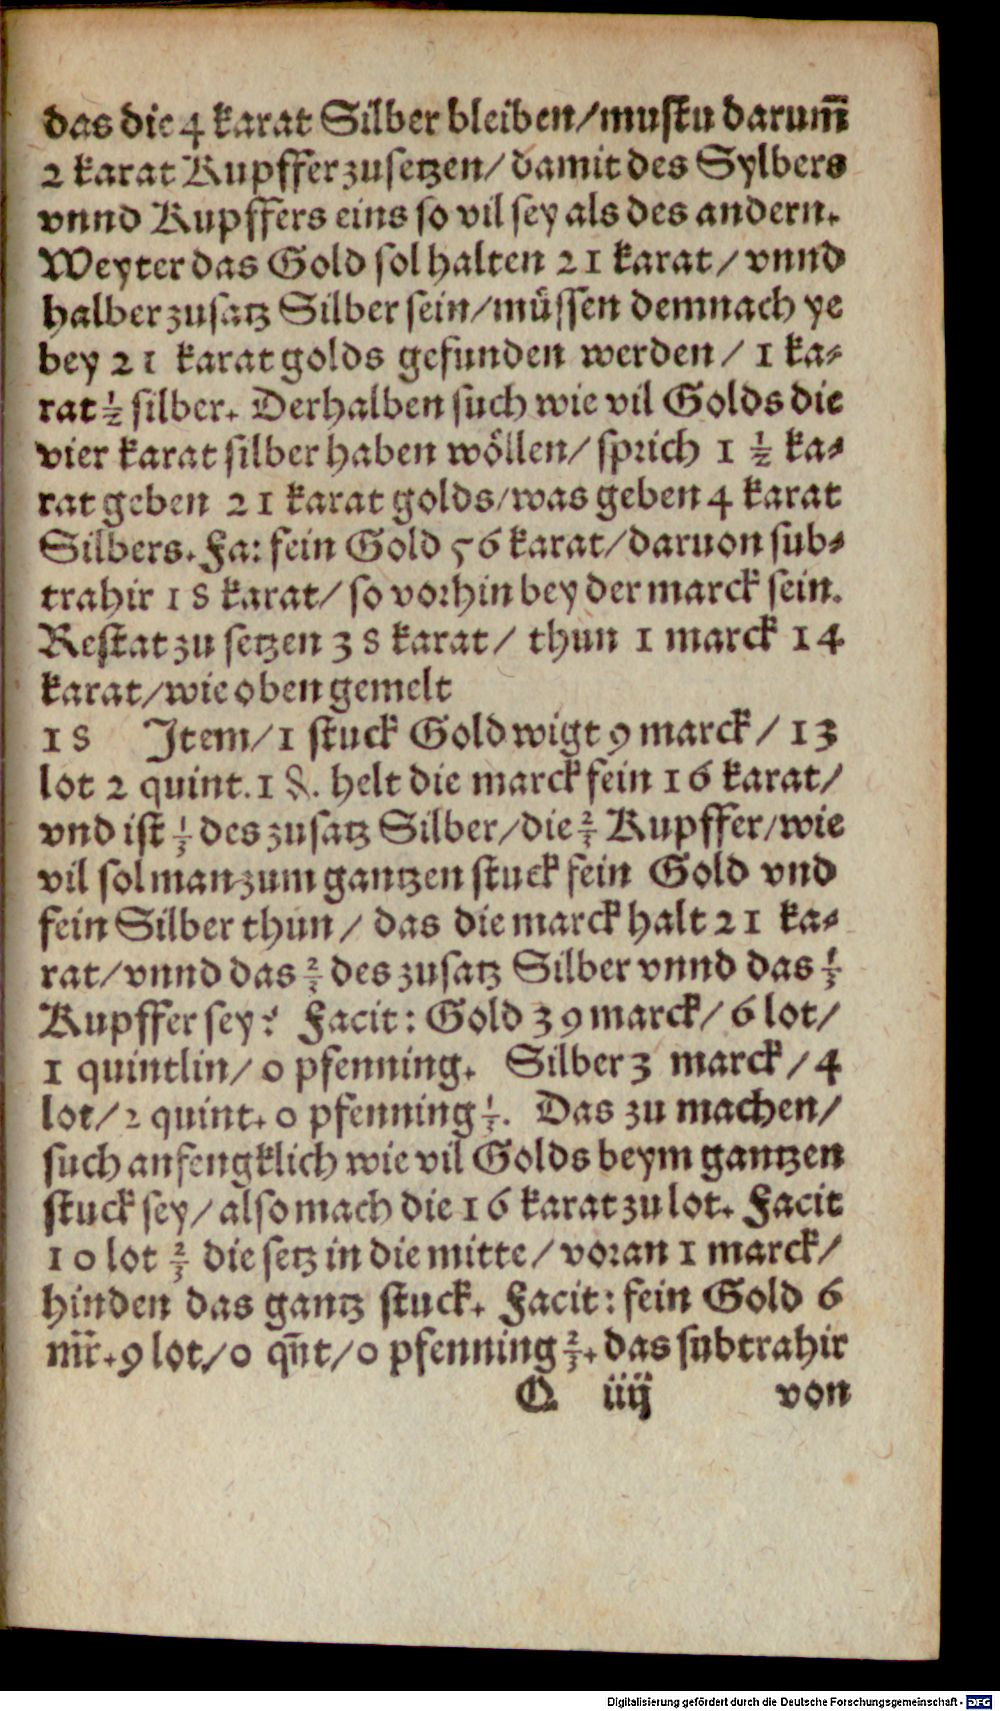 das die 4 karat Silber bleiben/mustu darum̅
2 karat Kupffer zusetzen/ damit des Sylbers
vnnd Kupffers eins so vil sey als des andern.
Weyter das Gold sol halten 21 karat/ vnnd
halber zusatz Silber sein/müssen demnach ye
bey 21 karat golds gefunden werden/ 1 ka⸗
rat ½ silber. Derhalben such wie vil Golds die
vier karat silber haben wöllen/ sprich 1 ½ ka⸗
rat geben 21 karat golds/was geben 4 karat
Silbers. Fa: fein Gold 56 karat/daruon sub⸗
trahir 18 karat/ so vorhin bey der marck sein.
Restat zu setzen 38 karat/ thun 1 marck 14
karat/wie oben gemelt
18 Item/1 stuck Gold wigt 9 marck/ 13
lot 2 quint.1 ₰. helt die marck fein 16 karat/
vnd ist ⅓ des zusatz Silber/die ⅔ Kupffer/wie
vil sol man zum gantzen stuck fein Gold vnd
fein Silber thun/ das die marck halt 21 ka⸗
rat/vnnd das ⅔ des zusatz Silber vnnd das ⅓
Kupffer sey? Facit: Gold 39 marck/ 6 lot/
1 quintlin/ 0 pfenning. Silber 3 marck/ 4
lot/ 2 quint. 0 pfenning ⅓. Das zu machen/
such anfengklich wie vil Golds beym gantzen
stuck sey/ also mach die 16 karat zu lot. Facit
10 lot ⅔ die setz in die mitte/ voran 1 marck/
hinden das gantz stuck. Facit: fein Gold 6
mr̅.9 lot/0 qn̅t/0 pfenning ⅔. das subtrahir
Q iiij von
Digitalisierung gefördert durch die Deutsche Forschungsgemeinschaft - DFG